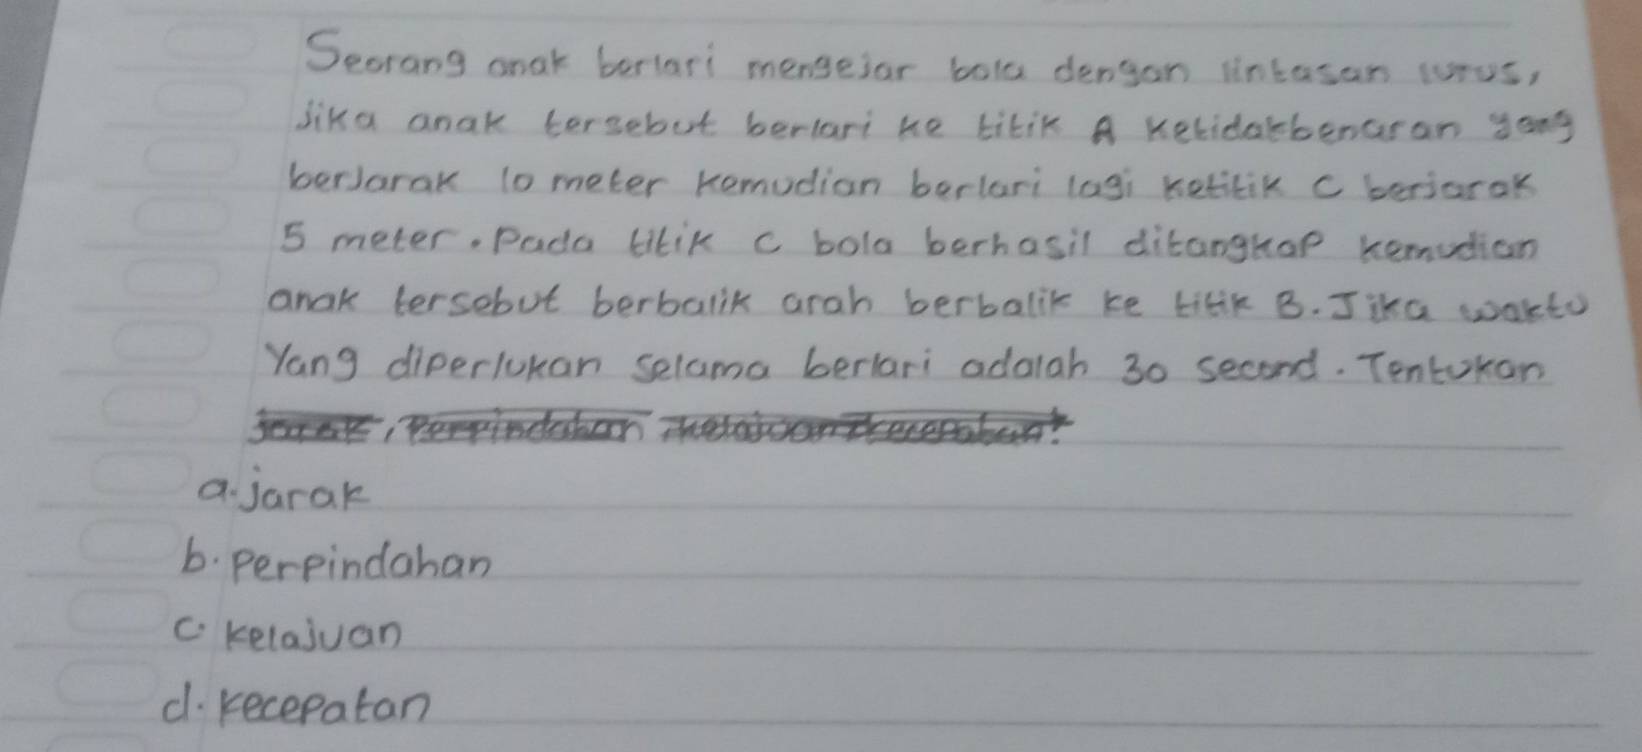 Seorang anak berlari mengejar bola dengan lintasan lurus,
Jika anak tersebut berlari ke titik A ketidakbenaran yang
berjarak 10 meter kemudian berlari lagi ketitik C berjarak
5 meter. Pada titik C bola berhasil ditangkap kemudian
anak tersebut berbalik arah berbalik ke titik B. Jika waktu
Yang diperlukan selama berlari adalah 30 second. Tentukan
jarak, Perpindahan, kelajuan, kecepatan!
a. jarak
b. perpindahan
c. kelajuan
d. kecepatan